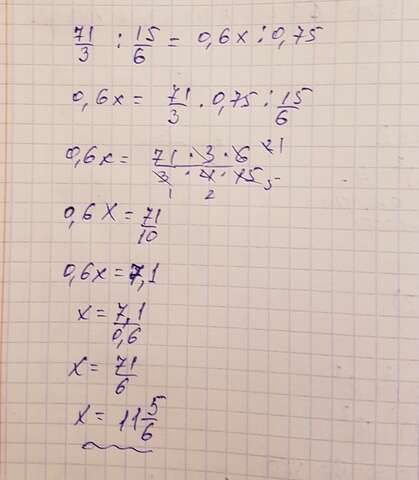 71/3 : 15/6 = 0,6x : 0,75
0,6x = 71/3 · 0,75 : 15/6
0,6x = 71 · 3 · 6 21 / 3 · 4 · 15 5 1 2
0,6X = 71/10
0,6x = 7,1
x = 7,1/0,6
x = 71/6
x = 11 5/6